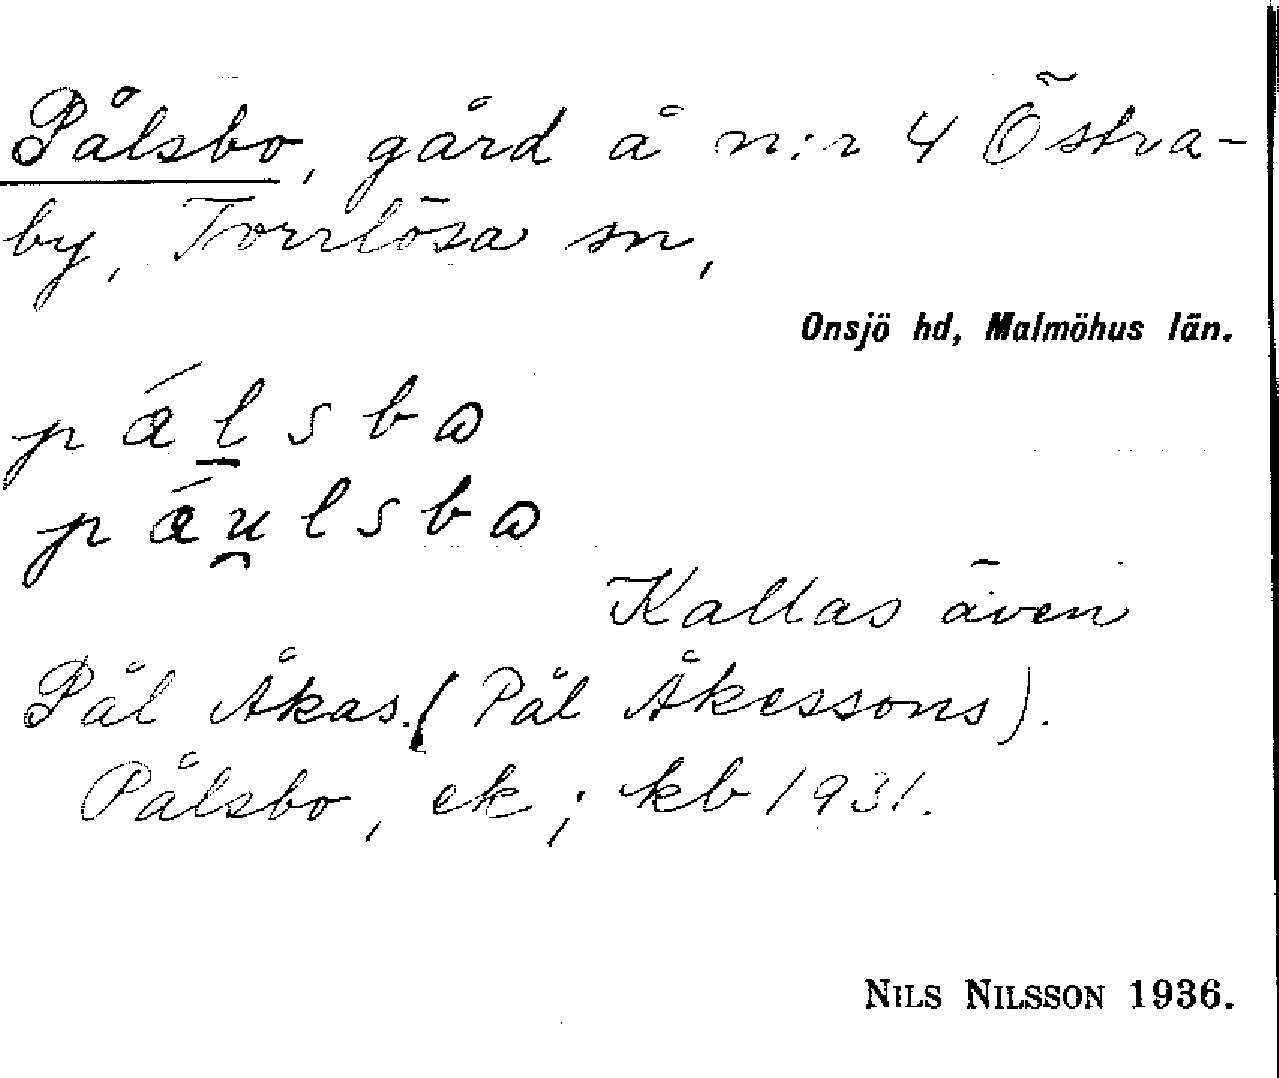 Pålsbo, gård å n:r 4 Östra-
by, Torrlösa sn,
Onsjö hd, Malmöhus län.
Kallas även
Pål Åkas. (Pål Åkessons).
Pålsbo, ek; kb 1931.
NILS NILSSON 1936.